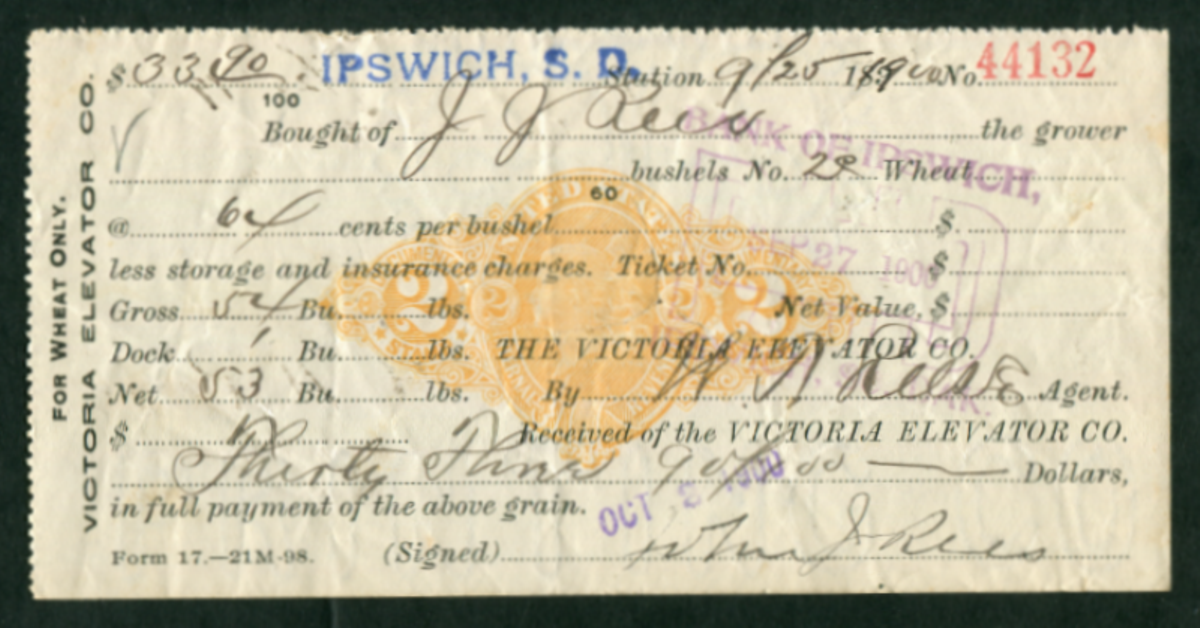 $ 33 90/100 IPSWICH, S. D. Station 9/25 1900 No. 44132
Bought of J J Rees the grower
bushels No. 2 Wheat
60
@ 64 cents per bushel $
less storage and insurance charges. Ticket No. $
Gross 54 Bu. lbs. Net Value, $
Dock 1 Bu. lbs. THE VICTORIA ELEVATOR CO.
Net 53 Bu. lbs. By W N Reese Agent.
$ Received of the VICTORIA ELEVATOR CO.
Thirty Three 90/100 Dollars,
in full payment of the above grain.
Form 17.—21M-98. (Signed) Wm J Rees
FOR WHEAT ONLY.
VICTORIA ELEVATOR CO.
BANK OF IPSWICH,
SEP 27 1900
OCT 3 1900
UNITED STATES
2 2 2 2